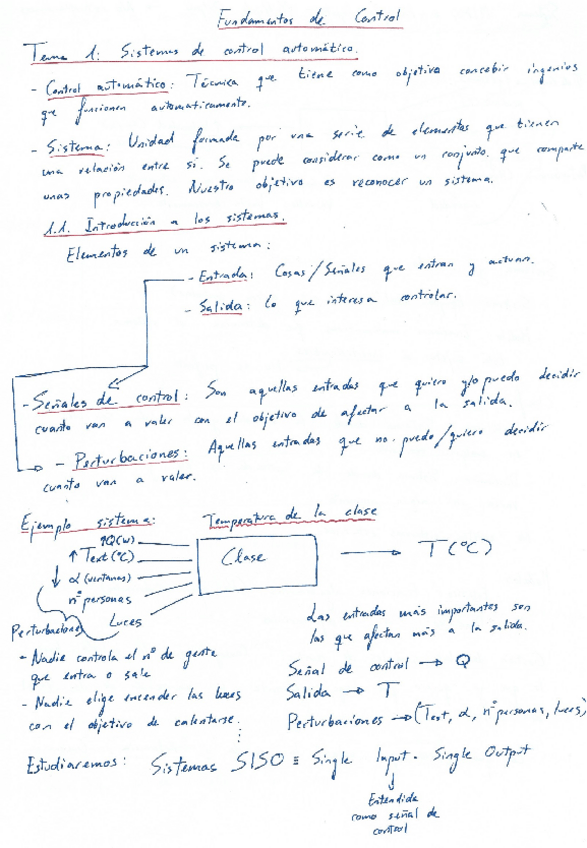 Fundamentos de Control
Tema 1: Sistemas de control automático.
- Control automático: Técnica que tiene como objetivo concebir ingenios
que funcionen automaticamente.
- Sistema: Unidad formada por una serie de elementos que tienen
una relación entre sí. Se puede considerar como un conjunto que comparte
unas propiedades. Nuestro objetivo es reconocer un sistema.
1.1. Introducción a los sistemas.
Elementos de un sistema:
- Entrada: Cosas/Señales que entran y actúan.
- Salida: Lo que interesa controlar.
- Señales de control: Son aquellas entradas que quiero y/o puedo decidir
cuanto van a valer con el objetivo de afectar a la salida.
- Perturbaciones: Aquellas entradas que no puedo/quiero decidir
cuanto van a valer.
Ejemplo sistema: Temperatura de la clase
Q(w)
↑ Text (°C)
↓ α (ventanas)
nº personas
Luces
Clase
→ T(°C)
Perturbaciones
- Nadie controla el nº de gente
que entra o sale
- Nadie elige encender las luces
con el objetivo de calentarse.
Las entradas más importantes son
las que afectan más a la salida.
Señal de control → Q
Salida → T
Perturbaciones → (Text, α, nº personas, luces)
Estudiaremos: Sistemas SISO ≡ Single Input. Single Output
↓
Entendida
como señal de
control